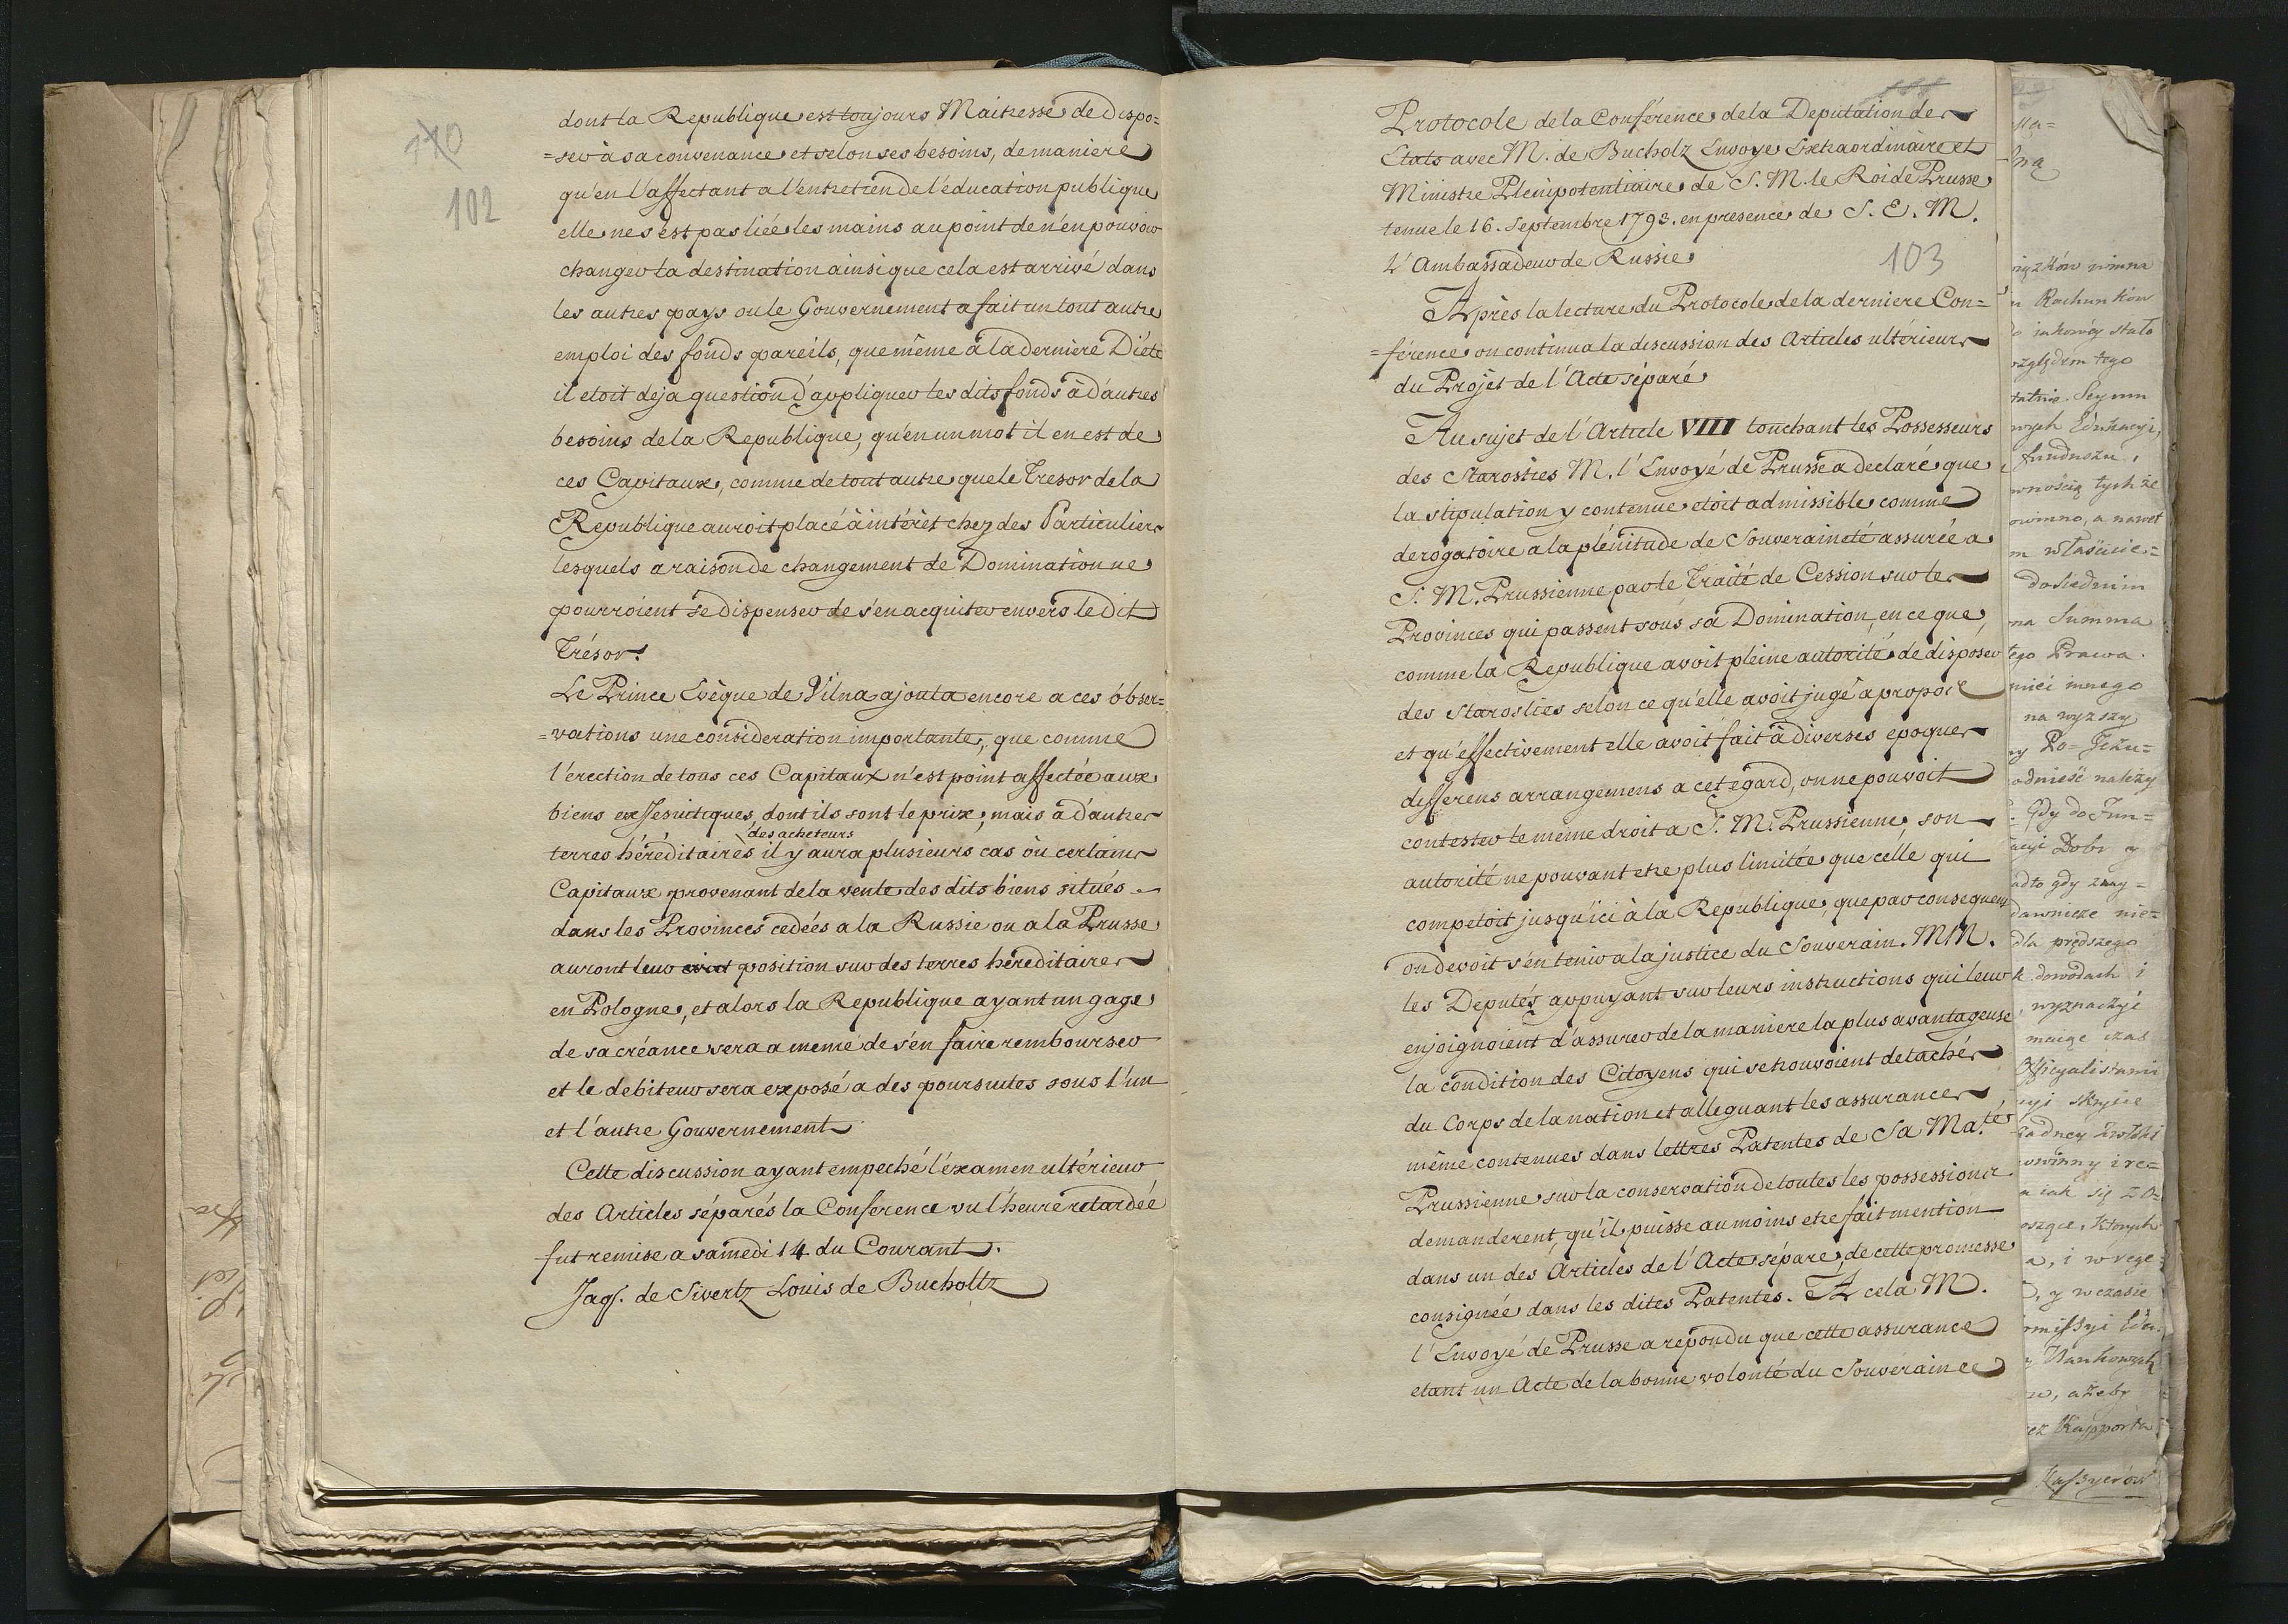 110
102
dont la Republique est toujours Maitresse de dispo=
=ser à sa convenance et selon ses besoins, de maniere
qu'en l'affectant a l'entretien de l'éducation publique
elle ne s'est pas liée les mains au point de n'en pouvoir
changer la destination ainsi que cela est arrivé dans
les autres pays ou le Gouvernement a fait un tout autre
emploi des fonds pareils, que même à la derniere Diéte
il etoit deja question d'appliquer les dits fonds à d'autres
besoins de la Republique, qu'en un mot il en est de
ces Capitaux, comme de tout autre que le Tresor de la
Republique auroit placé à intérêt chez des Particuliers
lesquels a raison de changement de Domination ne
pourroient se dispenser de s'en acquiter envers le dit
Trésor.
Le Prince Evêque de Vilna ajouta encore a ces obser=
=vations une consideration importante, que comme
l'erection de tous ces Capitaux n'est point affectée aux
biens exJesuitiques, dont ils sont le prix, mais à d'autres
des acheteurs
terres héréditaires il y aura plusieurs cas où certains
Capitaux provenant de la vente des dits biens situés
dans les Provinces cedées a la Russie ou a la Prusse
auront leur position sur des terres héreditaires
en Pologne, et alors la Republique ayant un gage
de sa créance sera a meme de s'en faire rembourser
et le debiteur sera exposé a des poursuites sous l'un
et l'autre Gouvernement
Cette discussion ayant empeché l'éxamen ultérieur
des Articles séparés la Conference vu l'heure retardée
fut remise a samedi 14 du Courant.
Jaq. de Sivertz Louis de Bucholtz
Protocole de la Conférence de la Deputation des
Etats avec M. de Bucholz Envoye Extraordinaire et
Ministre Plenipotentiaire de S. M. le Roi de Prusse
tenue le 16. Septembre 1793. en presence de S. E. M.
L'Ambassadeur de Russie
103
Après la lecture du Protocole de la derniere Con=
=férence on continua la discussion des Articles ulterieurs
du Projet de l'Acte séparé
Au sujet de l'Article VIII touchant les Possesseurs
des Starosties M. l'Envoyé de Prusse a declaré que
la stipulation y contenue etoit admissible comme
derogatoire a la plénitude de Souveraineté assurée a
S. M. Prussienne par le Traité de Cession sur les
Provinces qui passent sous sa Domination, en ce que,
comme la Republique avoit pleine autorité de disposer
des Starosties selon ce qu'elle avoit jugé a propos
et qu'effectivement elle avoit fait à diverses epoques
differens arrangemens a cet égard, on ne pouvoit
contester le meme droit a S. M. Prussienne, son
autorité ne pouvant etre plus limitée que celle qui
competoit jusqu'ici à la Republique, que par consequent
on devoit s'en tenir a la justice du Souverain. MM.
les Deputés appuyant sur leurs instructions qui leur
enjoignoient d'assurer de la maniere la plus avantageuse
la condition des Citoyens qui se trouvoient detachés
du Corps de la nation et alleguant les assurances
même contenues dans lettres Patentes de Sa Ma.tés
Prussienne sur la conservation de toutes les possessions
demanderent, qu'il puisse au moins etre fait mention
dans un des Articles de l'Acte séparé, de cette promesse
consignée dans les dites Patentes. A cela M.
l'Envoyé de Prusse a repondu que cette assurance
etant un Acte de la bonne volonté du Souverain ce
Rachunkow
stało
względem tego
Seymu
Edukacyi,
funduszu,
tychże
a nawet
Summa
Prawa
innego
na wyzszy
należy
Dobr y
prędszego
dowodach i
wyznaczyć
czas
i w rege
y w czasie
ażeby
Rapporta
Kassyerów